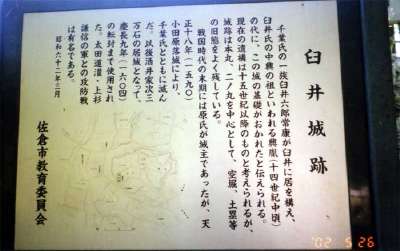 臼井城跡
千葉氏の一族臼井六郎常康が臼井に居を構え、
臼井氏の中興の祖といわれる興胤(十四世紀中頃)
の代に、この城の基礎がおかれたと伝えられる。
現在の遺構は十五世紀以降のものと考えられるが、
城跡は本丸、二ノ丸を中心として、空堀、土塁等
の旧態をよく残している。
戦国時代の末期には原氏が城主であったが、天
正十八年(一五九〇)
小田原落城により、
千葉氏とともに滅ん
だ。以後酒井家次三
万石の居城となって、
慶長九年(一六〇四)
の転封まで使用され
た。太田道灌・上杉
謙信の軍との攻防戦
は有名である。
昭和六十二年三月
佐倉市教育委員会
'02 5 26